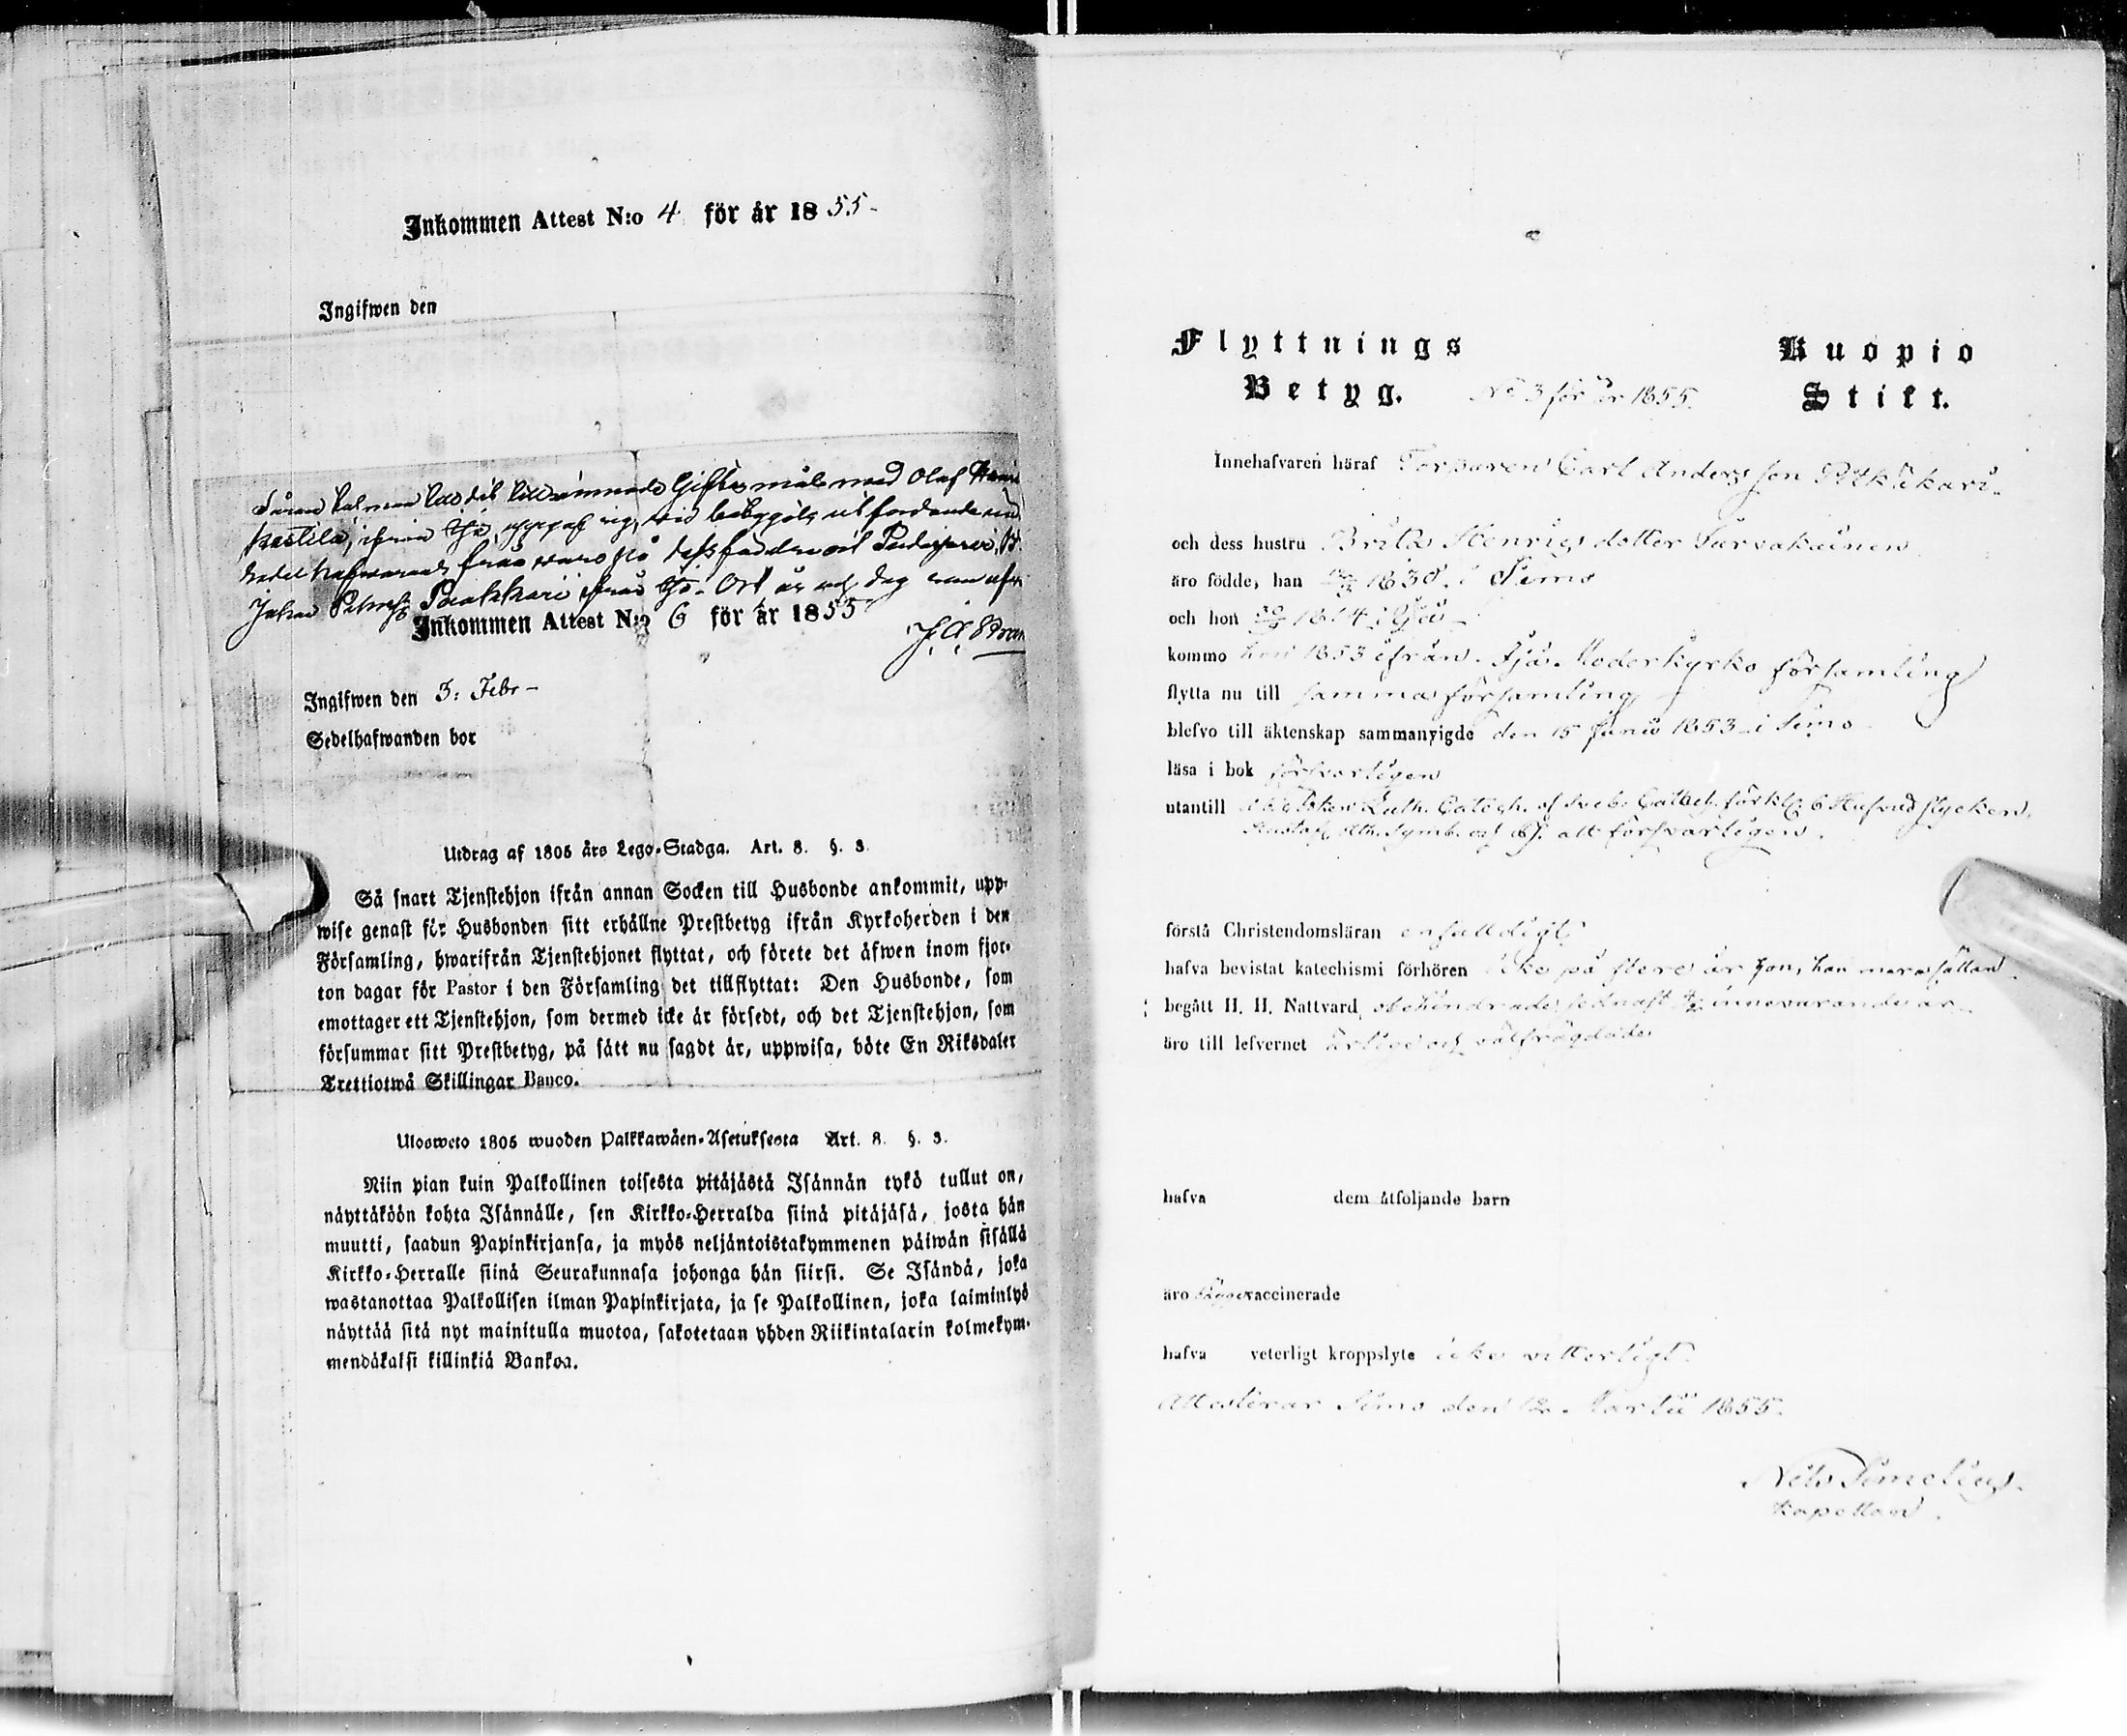 Inkommen Attest N:o 4 för år 1855-
Ingifwen den
Giftermål med Olof
Kastila, ifrån
Johan Paakkari ifrån Ijo. Ort, år och dag som ofvan
Inkommen Attest N:o 6 för år 1855
Ingifwen den 3: Febr-
Sedelhafwanden bor
Utdrag af 1805 års Lego-Stadga. Art. 8. §. 3.
Så snart Tjenstehjon ifrån annan Socken till Husbonde ankommit, upp-
wise genast för Husbonden sitt erhållne Prestbetyg ifrån Kyrkoherden i den
Församling, hwarifrån Tjenstehjonet flyttat, och förete det äfwen inom fjor-
ton dagar för Pastor i den Församling det tillflyttat: Den Husbonde, som
emottager ett Tjenstehjon, som dermed icke är försedt, och det Tjenstehjon, som
försummar sitt Prestbetyg, på sätt nu sagdt är, uppwisa, böte En Riksdaler
Trettiotwå Skillingar Banco.
Ulosweto 1805 wuoden Palkkawäen-Asetuksesta Art. 8. §. 3.
Niin pian kuin Palkollinen toisesta pitäjästä Isännän tykö tullut on,
näyttäköön kohta Isännälle, sen Kirkko-Herralda siinä pitäjäsä, josta hän
muutti, saadun Papinkirjansa, ja myös neljäntoistakymmenen päiwän sisällä
Kirkko-Herralle siinä Seurakunnasa johonga hän siirsi. Se Isändä, joka
wastanottaa Palkollisen ilman Papinkirjata, ja se Palkollinen, joka laiminlyö
näyttää sitä nyt mainitulla muotoa, sakotetaan yhden Riikintalarin kolmekym-
mendäkaksi killinkiä Bankoa.
Flyttnings Kuopio
Betyg. No 3 för år 1855. Stift.
Innehafvaren häraf Torparen Carl Andersson Pitkäkari
och dess hustru Brita Henrics dotter
äro födde, han 1830 i Simo
och hon 1814 i Ijo
kommo hon 1853 ifrån Ijo Moderkyrko församling
flytta nu till samma församling
blefvo till äktenskap sammanvigde den 15 Junii 1853 i Simo
läsa i bok försvarligen
utantill Luth. Catech. Hufvudstycken,
Ath. Symb. och allt försvarligen.
förstå Christendomsläran enfaldigt
hafva bevistat katechismi förhören icke på flere år hon, han mera sällan
begått H. H. Nattvard obehindrade, sednast innevarande år
äro till lefvernet ärlige och välfrägdade
hafva dem åtföljande barn
äro vaccinerade
hafva veterligt kroppslyte icke vitterligt.
Attesterar Simo den 12 Martii 1855.
Nils Simelius.
Kapellan.